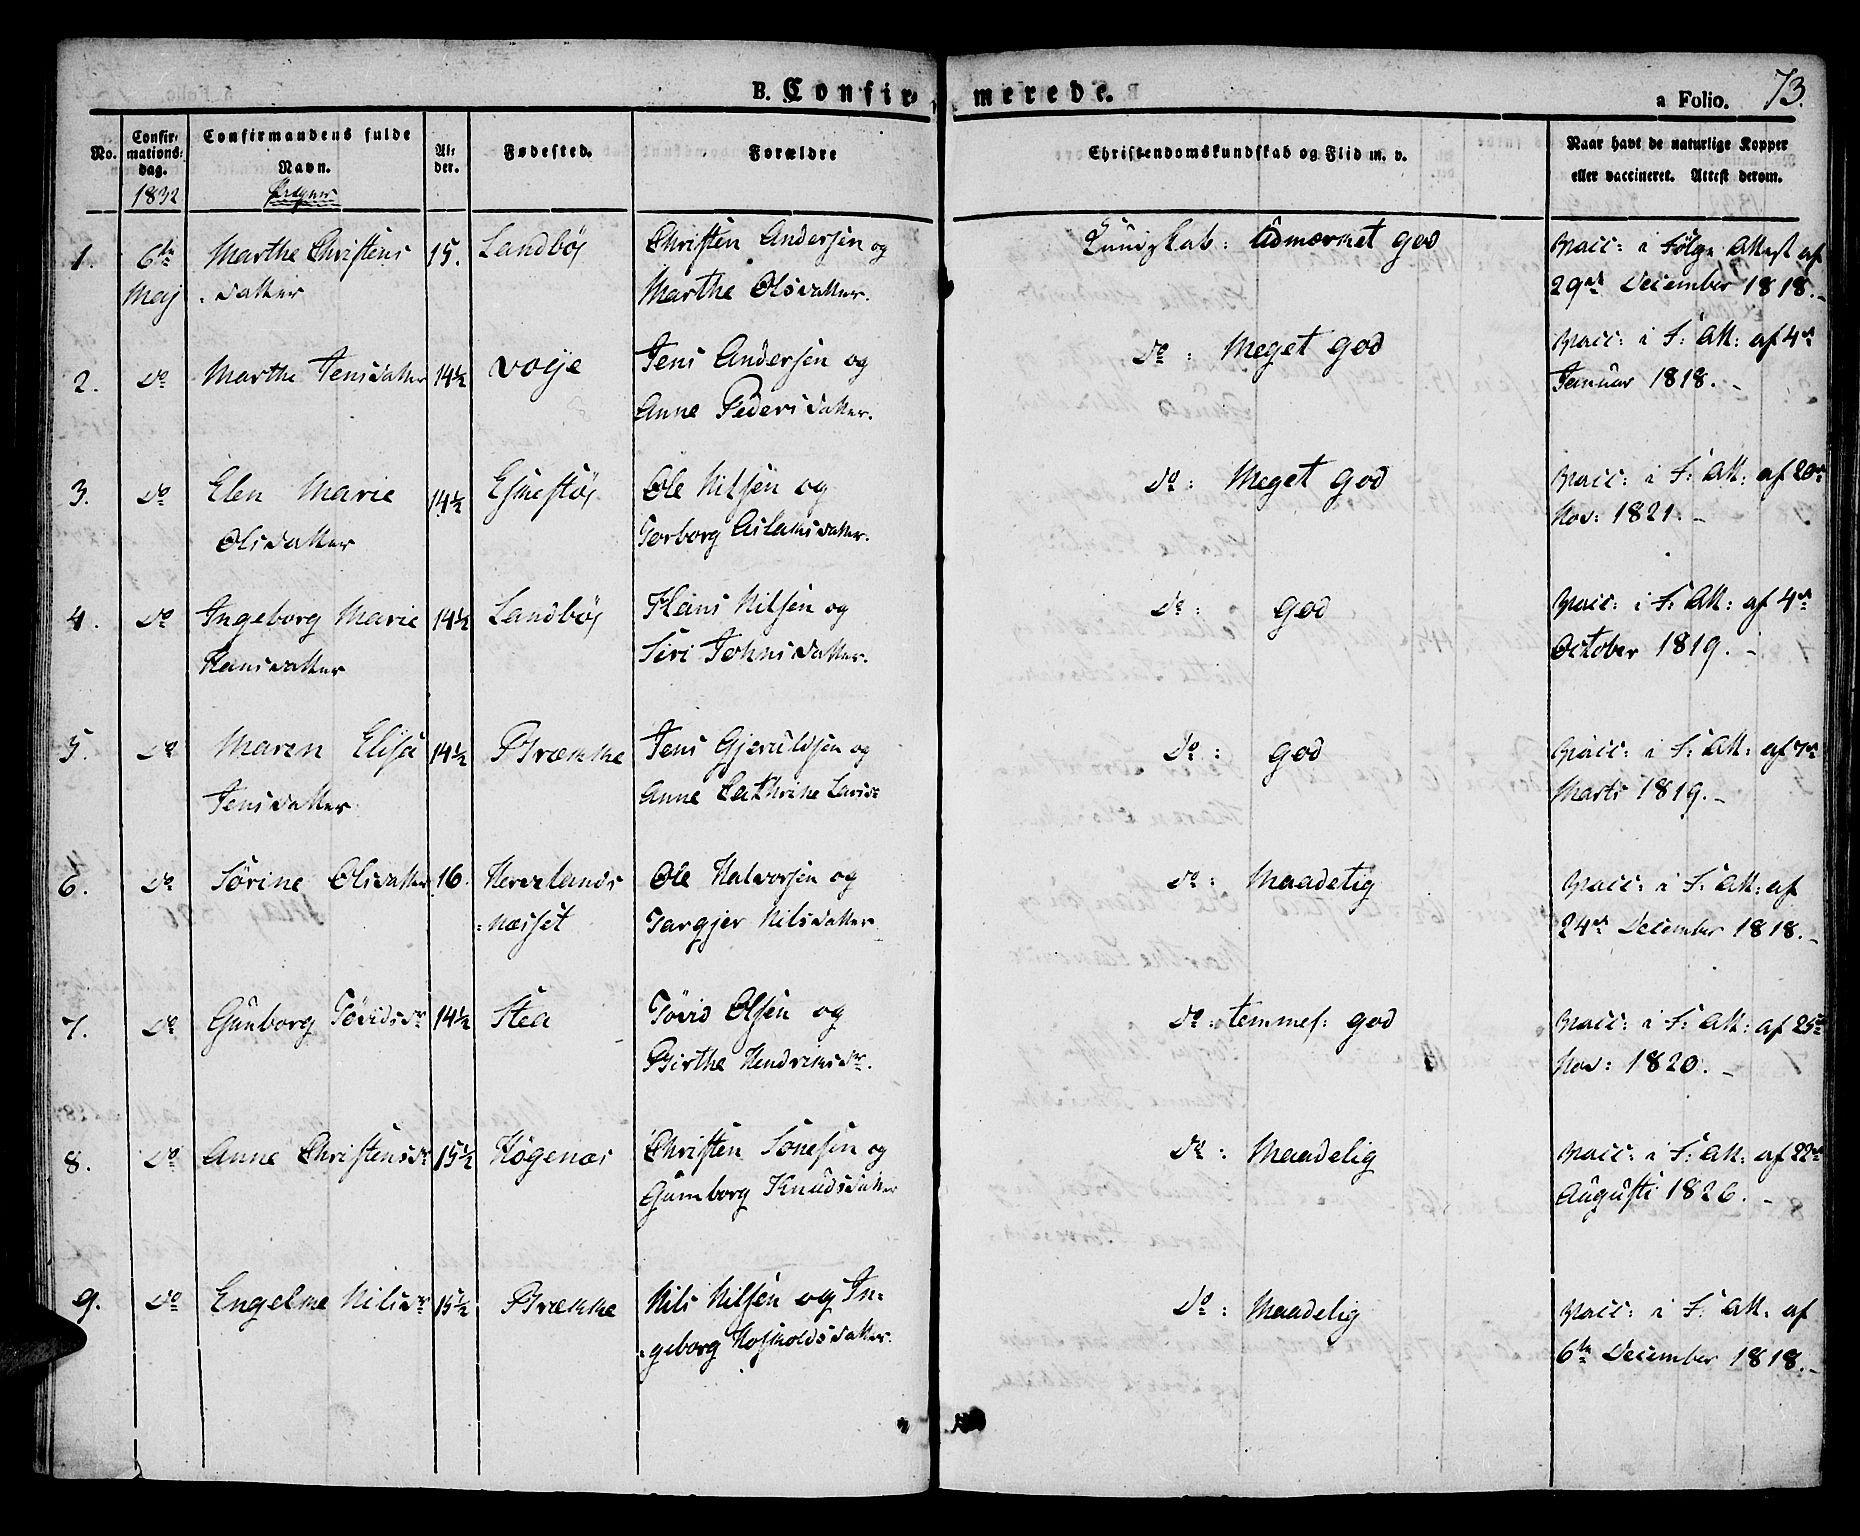 B. Confir-merede.
a Folio. 73.
No. Confirmations-dag. 1832 Confirmandens fulde Navn. Piger Alder. Fødested. Forældre Christendomskundskab og Flid m. v. Naar havt de naturlige Kopper eller vaccineret. Attest derom.
1. 6te Marthe Christens 15. Landbøe Christen Andersen og Kundskab: Udmærket god Vacc: i Følge Attest af
Maj -datter Marthe Olsdatter. 29de December 1818.-
2. Do Marthe Jensdatter 14½ Voije Jens Andersen og Do: Meget god Vacc: i F: Att: af 4de
Anne Pedersdatter. Januar 1818.-
3. Do Elen Marie 14½ Ejmestøe Ole Nilsen og Do: Meget god Vacc: i F: Att: af 20de
Olsdatter Torborg Aslaksdatter. Nov: 1821.-
4. Do Ingeborg Marie 14½ Landbøe Hans Nilsen og Do: god Vacc: i F: Att: af 4de
Hansdatter Siri Johnsdatter. October 1819.-
5. Do Maren Elisa 14½ Brække Jens Gjeruldsen og Do: god Vacc: i F: Att: af 7de
Jensdatter Anne Cathrine Larsdr Marts 1819.-
6. Do Sørine Olsdatter 16. Hervelands Ole Halvorsen og Do: Maadelig Vacc: i F: Att: af
-næsset Targjer Nilsdatter 24de December 1818.-
7. Do Gunborg Tøvidsdr 14½ Stea Tøvid Olsen og Do: temmel: god Vacc: i F: Att: af 25de
Birthe Hendriksdr. Nov: 1820.-
8. Do Anne Christensdr 15½ Høgenæs Christen Sonesen og Do: Maadelig Vacc: i F: Att: af 22de
Gumborg Knudsdatter Augusti 1826.-
9. Do Engelme Nilsdr 15½ Brække Nils Nilsen og In- Do: Maadelig Vacc: i F: Att: af
-geborg Hoskoldsdatter. 6te December 1818.-